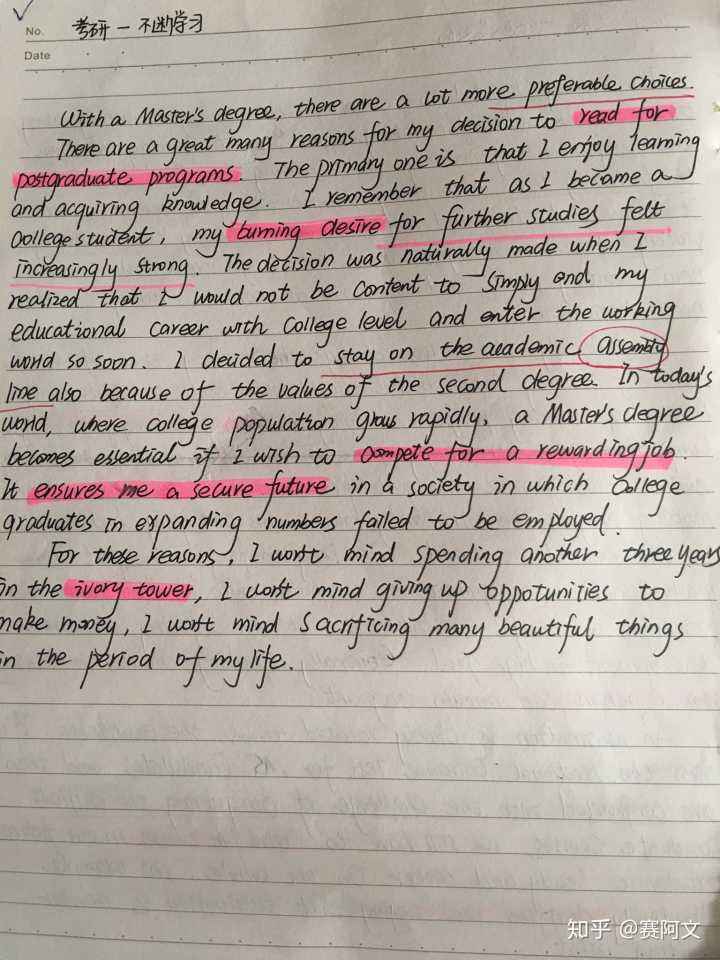 No. 考研 — 不断学习
Date
With a Master's degree, there are a lot more preferable choices.
There are a great many reasons for my decision to read for
postgraduate programs. The primary one is that I enjoy learning
and acquiring knowledge. I remember that as I became a
College student, my burning desire for further studies felt
increasingly strong. The decision was naturally made when I
realized that I would not be content to simply end my
educational career with college level and enter the working
world so soon. I decided to stay on the academic assembly
line also because of the values of the second degree. In today's
world, where college population grows rapidly, a Master's degree
becomes essential if I wish to compete for a rewarding job.
It ensures me a secure future in a society in which College
graduates in expanding numbers failed to be employed.
For these reasons, I won't mind spending another three years
in the ivory tower, I won't mind giving up oppotunities to
make money, I won't mind sacrificing many beautiful things
in the period of my life.
知乎 @赛阿文